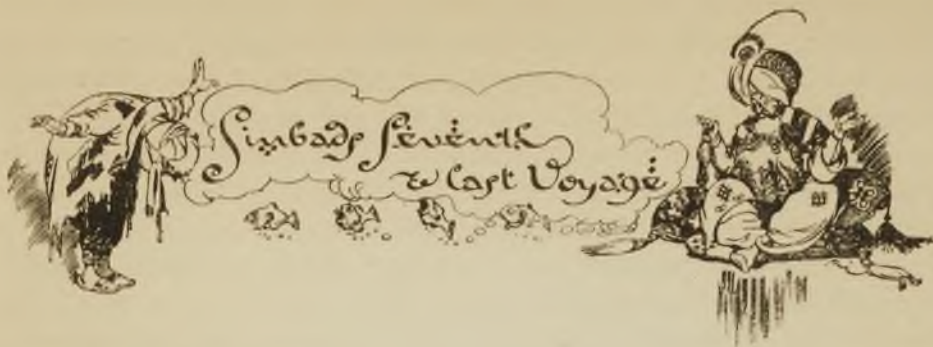 Sinbads Seventh
& Last Voyage